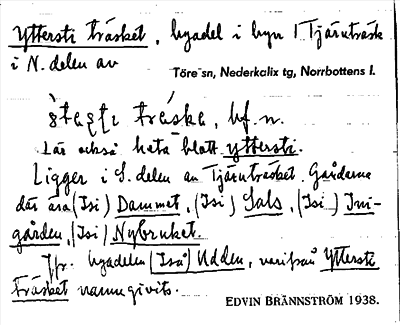 Yttersti träsket, byadel i byn Tjärnträsk
i N. delen av
Töre sn, Nederkalix tg, Norrbottens l.
träske, bf. n.
Lär också heta blott yttersti.
Ligger i S. delen av Tjärnträsket. Gårdarna
där äro (Isi) Dammet, (Isi) Sals, (Isi) Ini-
gården, (Isi) Nybruket.
Jfr. byadelen (Iså) Udden, varifrån Yttersti
träsket namngivits.
EDVIN BRÄNNSTRÖM 1938.